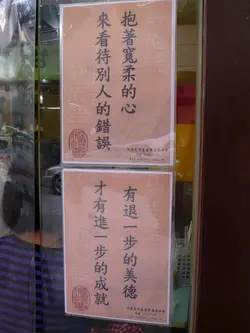 抱著寬柔的心
來看待別人的錯誤
有退一步的美德
才有進一步的成就